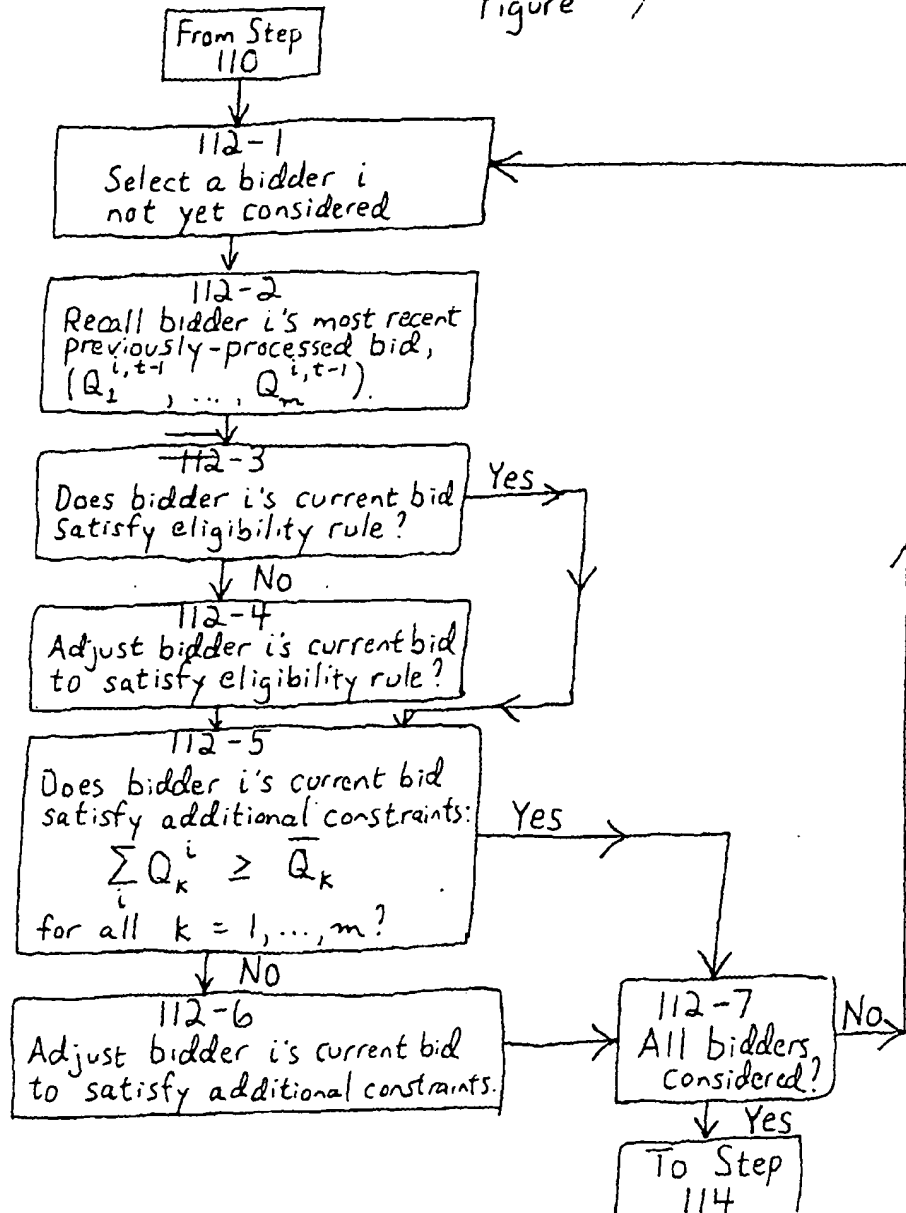 Figure 7
From Step
110
112-1
Select a bidder i
not yet considered
112-2
Recall bidder i's most recent
previously-processed bid,
(Q₁^{i,t-1}, ..., Qₘ^{i,t-1}).
112-3
Does bidder i's current bid
satisfy eligibility rule?
Yes
No
112-4
Adjust bidder i's current bid
to satisfy eligibility rule?
112-5
Does bidder i's current bid
satisfy additional constraints:
Σᵢ Qₖ^i ≥ Q̄ₖ
for all k = 1, ..., m?
Yes
No
112-6
Adjust bidder i's current bid
to satisfy additional constraints.
112-7
All bidders
considered?
No
Yes
To Step
114